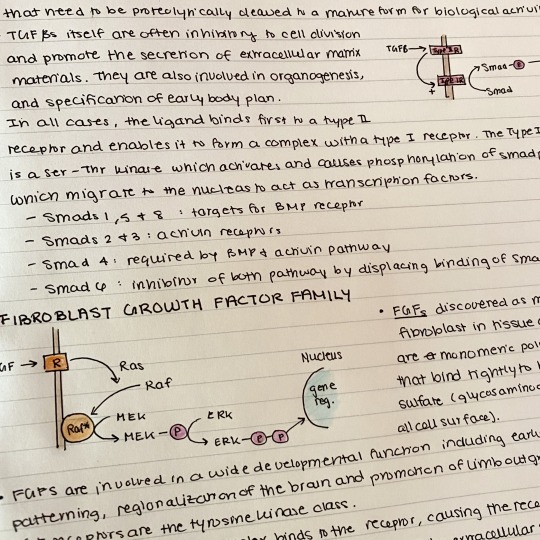 that need to be proteolytically cleaved to a mature form for biological
TGF βs itself are often inhibitory to cell division
and promote the secretion of extracellular matrix
materials. They are also involved in organogenesis,
and specification of early body plan.
TGFβ
Smad
P
+
Smad
In all cases, the ligand binds first to a type II
receptor and enables it to form a complex with a type I receptor. The Type I
is a ser-Thr kinase which activates and causes phosphorylation of smad
which migrate to the nucleus to act as transcription factors.
- Smads 1, 5 & 8 : targets for BMP receptor
- Smads 2 & 3 : activin receptors
- Smad 4 : required by BMP & activin pathway
- Smad 6 : inhibitor of both pathway by displacing binding of
FIBROBLAST GROWTH FACTOR FAMILY
GF → R
Ras
Raf
Raf*
MEK
MEK - P
ERK
ERK - P - P
Nucleus
gene
reg.
• FGFs discovered as
fibroblast in tissue
are monomeric
that bind tightly to
sulfate
all cell surface).
• FGFs are involved in a wide developmental function including
patterning, regionalization of the brain and promotion of limb
are the tyrosine kinase class.
binds to the receptor, causing the
extracellular